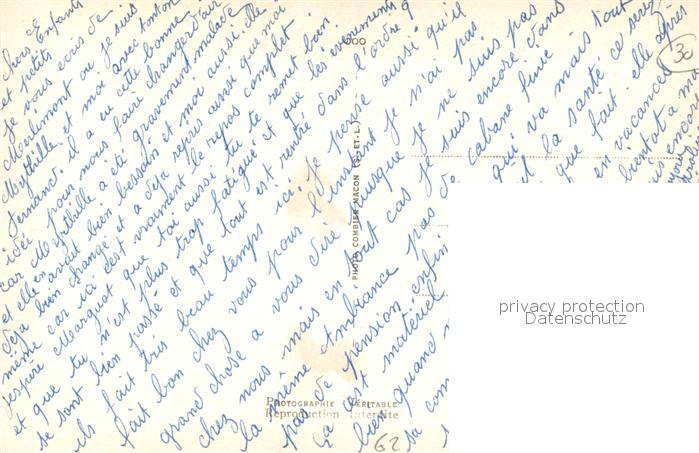 Chers
et petits Enfants
je vous écris de
Meulemont ou je suis
Myrthille et moi avec tonton
Fernand. il a eu cette bonne
idée pour nous faire changer d'air
car Myrthille a été gravement malade
et elle en avait bien besoin et moi aussi, elle
déjà bien changé et a déjà repris ainsi que moi
même car ici c'est vraiment le repos complet
j'espère Marguot que toi aussi tu te remet bien
et que tu n'est plus trap fatigué et que les
se sont bien passé et que tout est rentré dans l'ordre
ils fait très beau temps ici, je pense aussi qu'il
fait bon chez vous pour l'instant je n'ai pas
grand chose a vous dire puisque je ne suis pas
chez nous mais en tout cas je suis encore dans
la même Ambiance pas de cabane finie
pas de pension enfin qui va mais tout
ça c'est matériel la santé ce serai
bien quand que fait elle après
sa en vacances
bientot a m
PHOTO COMBIER MACON (S.-ET-L.)
PHOTOGRAPHIE VÉRITABLE
Reproduction Interdite
30
62
privacy protection
Datenschutz